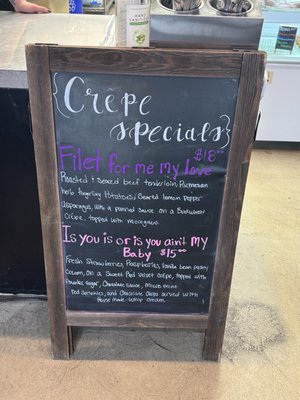 {Crepe
specials}
Filet for me my love
$18
Roasted & seared beef tenderloin, Parmesan
herb fingerling potatoes, seared lemon pepper
asparagus, with a painted sauce on a Buckwheat
Crepe, topped with microgreens.
Is you is or is you ain't MY
Baby $15
Fresh Strawberries, Raspberries, Vanilla bean pastry
Cream, on a Sweet Red Velvet Crepe, topped with
Powder sugar, Chocolate Sauce, Micro mint
Red Sprinkles, and Chocolate Chips served with
House made whip cream.